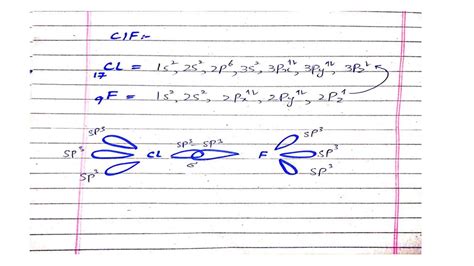 ClF:-
₁₇CL = 1s², 2s², 2p⁶, 3s², 3Px¹², 3Py¹², 3Pz¹
₉F = 1s², 2s², 2Px¹², 2Py¹², 2Pz¹
SP³ SP³-SP³ SP³
SP³ CL σ F SP³
SP³ SP³